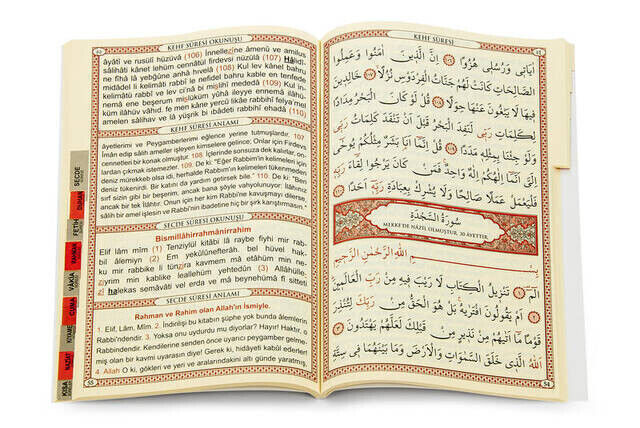 KEHF SÛRESİ OKUNUŞU
âyâtî ve rusulî hüzüvâ (106) İnnellezîne âmenû ve amilus
sâlihâti kânet lehüm cennâtül firdevsi nüzülâ (107) Hâlidî-
ne fîhâ lâ yebğûne anhâ hıvelâ (108) Kul lev kânel bahru
midâdel li kelimâti rabbî le nefidel bahru kable en tenfede
kelimâtü rabbî ve lev ci'nâ bi mislihî mededâ (109) Kul in-
nemâ ene beşerum mislüküm yûhâ ileyye ennemâ ilâhü-
küm ilâhüv vâhid. fe men kâne yercû likâe rabbihî felya'mel
amelen sâlihav ve lâ yüşrik bi ıbâdeti rabbihî ehadâ (110)
KEHF SÛRESİ ANLAMI
âyetlerimi ve Peygamberlerimi eğlence yerine tutmuşlardır. 107
İman edip sâlih ameller işleyen kimselere gelince; Onlar için Firdevs
cennetleri bir konak olmuştur. 108 İçlerinde sonsuza dek kalırlar, on-
lardan çıkmak istemezler. 109. De ki: "Eğer Rabbim'in kelimeleri için
deniz mürekkeb olsa idi, herhalde Rabbim'in kelimeleri tükenmeden
deniz tükenirdi. Bir katını da yardım getirsek bile." 110. De ki: "Ben
sırf sizin gibi bir beşerim, ancak bana şöyle vahyolunuyor: İlâhınız
ancak bir tek İlâhtır. Onun için her kim Rabbi'ne kavuşmayı dilerse,
sâlih bir amel işlesin ve Rabbi'nin ibâdetine hiç bir şirk karıştırmasın."
SECDE SÛRESİ OKUNUŞU
Bismillâhirrahmânirrahîm
Elif lâm mîm (1) Tenzîylül kitâbi lâ raybe fîyhi mir rab-
bil âlemîyn (2) Em yekûlûnefterâh. bel hüvel hak-
ku mir rabbike li tünzira kavmem mâ etâhüm min ne-
zîyrim min kablike leallehüm yehtedûn (3) Allâhülle-
zî halekas semâvâti vel erda ve mâ beynehümâ fî sitteti
SECDE SÛRESİ ANLAMI
Rahman ve Rahim olan Allah'ın İsmiyle.
1. Elif, Lâm, Mîm. 2. İndirilişi bu kitabın şüphe yok bunda âlemlerin
Rabbi'ndendir. 3. Yoksa onu uydurdu mu diyorlar? Hayır! Haktır, o
Rabbindendir. Kendilerine senden önce uyarıcı peygamber gelme-
miş olan bir kavmi uyarasın diye! Gerek ki, hidâyeti kabûl ederler!
4. Allah O ki, gökleri ve yeri ve aralarındakini altı günde yaratmış,
55
SECDE
DUHAN
FETH
RAHMAN
VAKIA
CUMA
KIYAME
NAZİAT
KISA
KEHF SÛRESİ
اٰيَاتٖي وَرُسُلٖي هُزُوًا ﴿١٠٦﴾ اِنَّ الَّذٖينَ اٰمَنُوا وَعَمِلُوا
الصَّالِحَاتِ كَانَتْ لَهُمْ جَنَّاتُ الْفِرْدَوْسِ نُزُلًا ﴿١٠٧﴾ خَالِدٖينَ
فٖيهَا لَا يَبْغُونَ عَنْهَا حِوَلًا ﴿١٠٨﴾ قُلْ لَوْ كَانَ الْبَحْرُ مِدَادًا
لِكَلِمَاتِ رَبّٖي لَنَفِدَ الْبَحْرُ قَبْلَ اَنْ تَنْفَدَ كَلِمَاتُ رَبّٖي
وَلَوْ جِئْنَا بِمِثْلِهٖ مَدَدًا ﴿١٠٩﴾ قُلْ اِنَّمَٓا اَنَا۬ بَشَرٌ مِثْلُكُمْ يُوحٰٓى
اِلَيَّ اَنَّمَٓا اِلٰهُكُمْ اِلٰهٌ وَاحِدٌ فَمَنْ كَانَ يَرْجُوا لِقَٓاءَ رَبِّهٖ
فَلْيَعْمَلْ عَمَلًا صَالِحًا وَلَا يُشْرِكْ بِعِبَادَةِ رَبِّهٖٓ اَحَدًا ﴿١١٠﴾
سُورَةُ السَّجْدَةِ
MEKKE'DE NÂZİL OLMUŞTUR. 30 ÂYETTİR.
بِسْمِ اللّٰهِ الرَّحْمٰنِ الرَّحٖيمِ
الٓمٓ ﴿١﴾ تَنْزٖيلُ الْكِتَابِ لَا رَيْبَ فٖيهِ مِنْ رَبِّ الْعَالَمٖينَ
﴿٢﴾ اَمْ يَقُولُونَ افْتَرٰيهُ بَلْ هُوَ الْحَقُّ مِنْ رَبِّكَ لِتُنْذِرَ
قَوْمًا مَٓا اَتٰيهُمْ مِنْ نَذٖيرٍ مِنْ قَبْلِكَ لَعَلَّهُمْ يَهْتَدُونَ ﴿٣﴾
اَللّٰهُ الَّذٖي خَلَقَ السَّمٰوَاتِ وَالْاَرْضَ وَمَا بَيْنَهُمَا فٖي سِتَّةِ
54